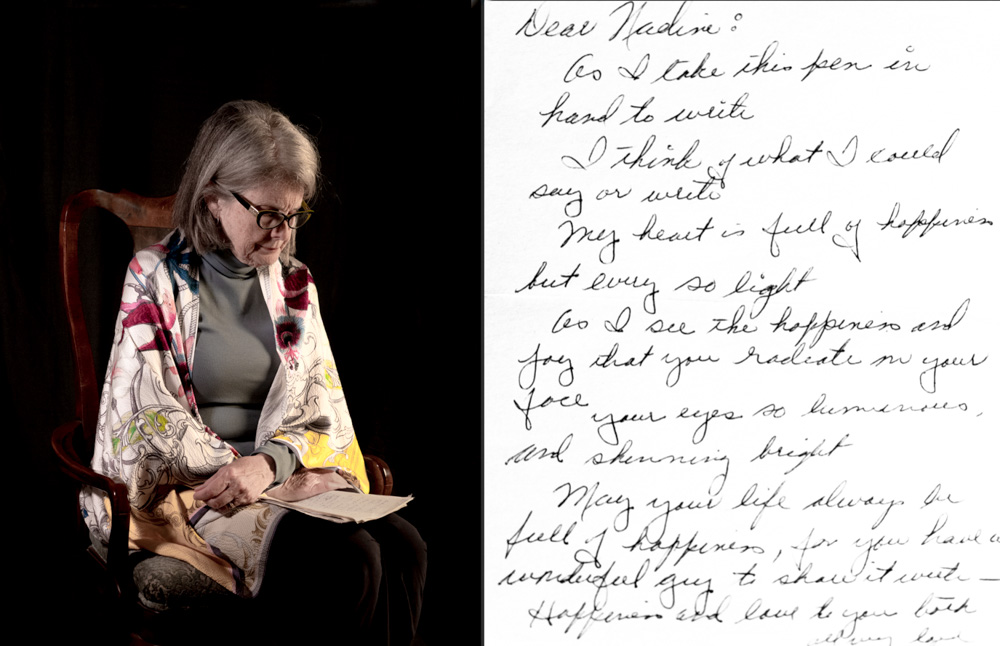 Dear Nadine:
As I take this pen in
hand to write
I think of what I could
say or write
My heart is full of happiness
but every so light
As I see the happiness and
joy that you radiate in your
face your eyes so lumanous,
and shinning bright
May your life always be
full of happiness, for you have a
wonderful guy to share it with —
Happiness and love to you both
all my love